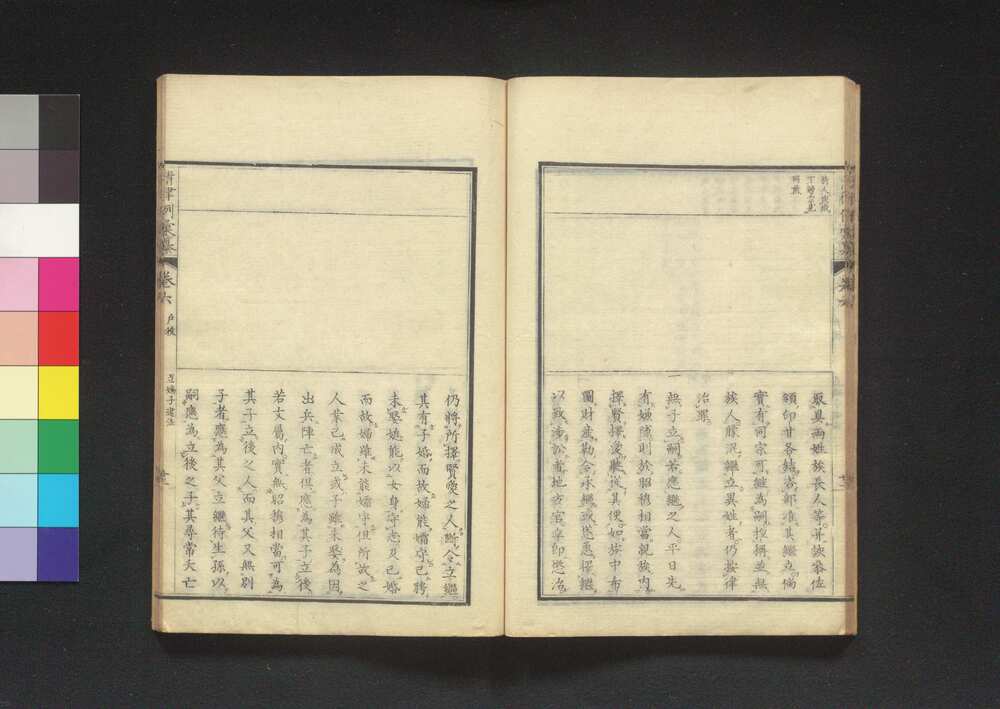 取具兩姓族長人等并該參佐
領印甘各結咨部准其繼立倘
實有同宗可繼為嗣捏稱並無
族人朦混繼立異姓者仍按律
治罪
一無子立嗣若應繼之人平日先
有嫌隙則於昭穆相當親族內
擇賢擇愛聽從其便如族中希
圖財產勒令承繼或慫恿擇繼
以致涉訟者地方官立即懲治
仍將所擇賢愛之人斷令立繼
其有子婚而故婦能孀守已聘
未娶媳能以女身守志及已婚
而故婦雖未能孀守但所故之
人業已成立或子雖未娶為因
出兵陣亡者俱應為其子立後
若支屬內實無昭穆相當可為
其子立後之人而其父又無別
子者應為其父立繼待生孫以
嗣應為立後之子其尋常夭亡
清律例彙纂 卷六 戶役 立嫡子違法